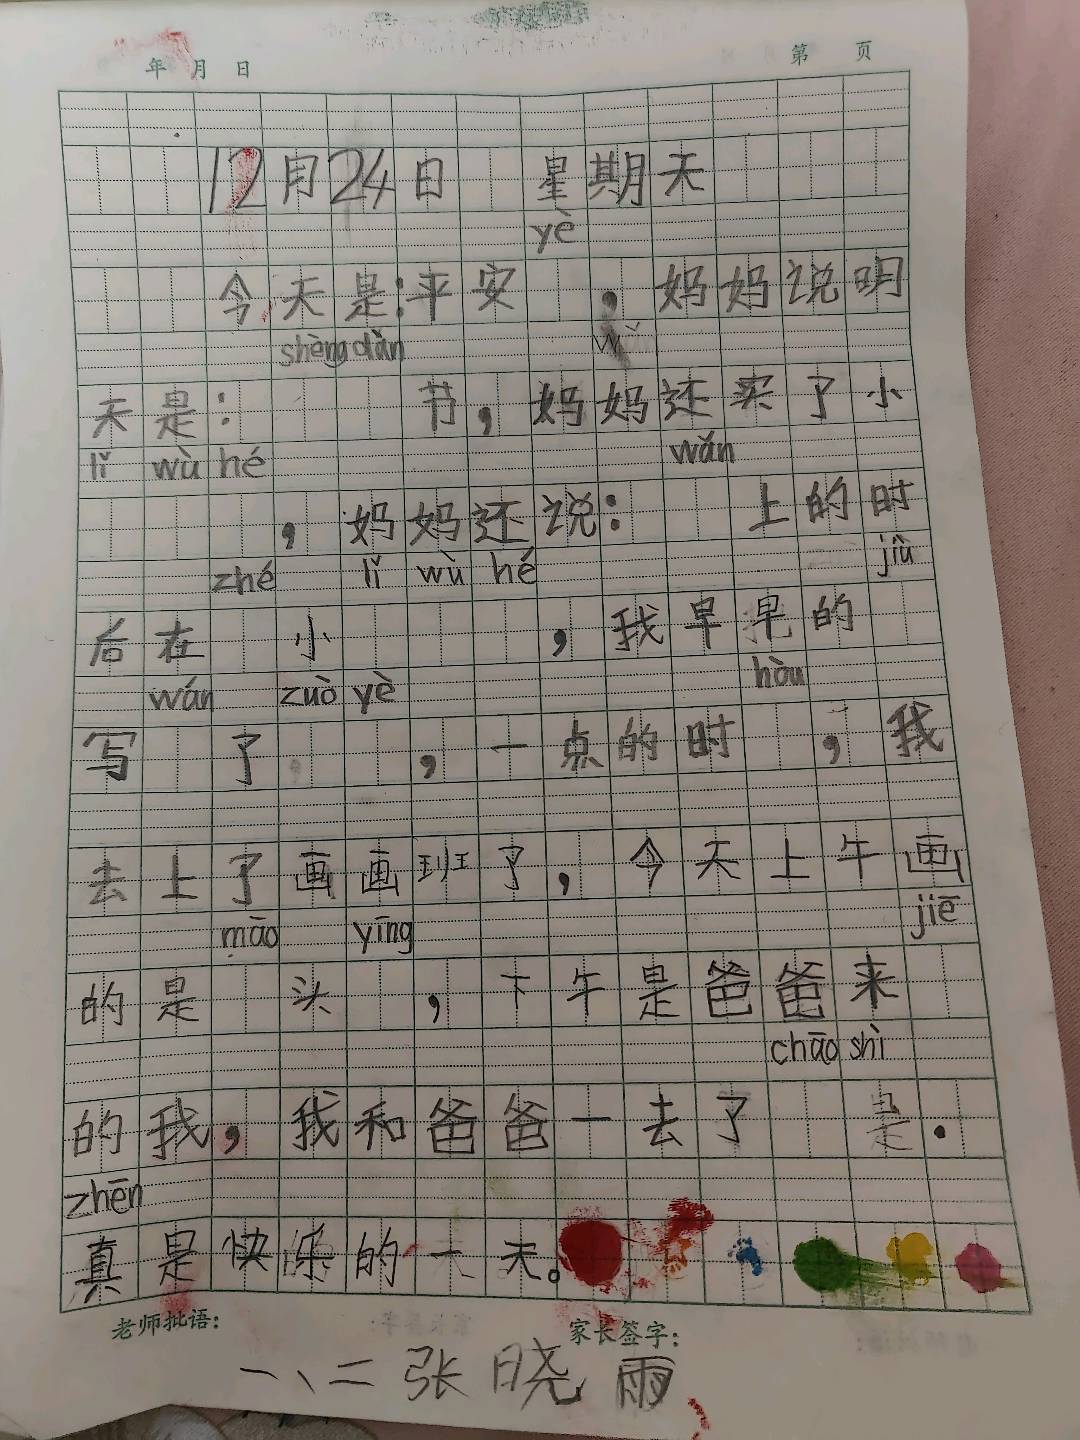 年 月 日 第 页
12月24日 星期天
yè
今天是:平安 ,妈妈说明
shèng dàn
天是: 节,妈妈还买了小
lǐ wù hé wǎn
,妈妈还说: 上的时
zhé lǐ wù hé jiù
后在 小 ,我早早的
wán zuò yè hòu
写 了 ,一点的时 ,我
去上了画画班了,今天上午画
māo yīng jiē
的是 头 ,下午是爸爸来
chāo shì
的我,我和爸爸一去了 是.
zhēn
真是快乐的一天。
老师批语: 家长签字:
一、二 张晓雨